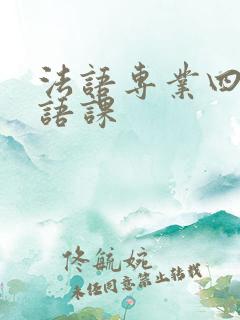 法語専業四
語課
佟毓婉
未经同意禁止转载